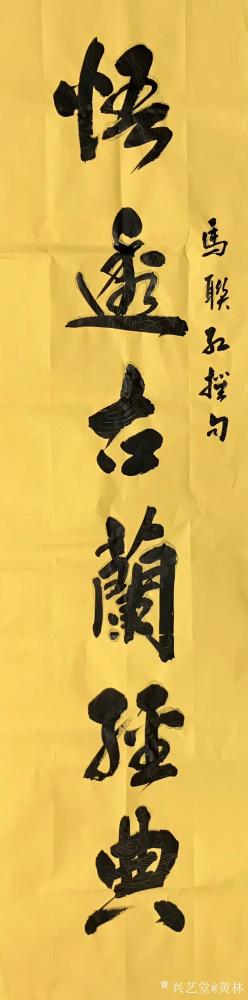 馬聯紅撰句
悟透古蘭經典
兴艺堂@黄林